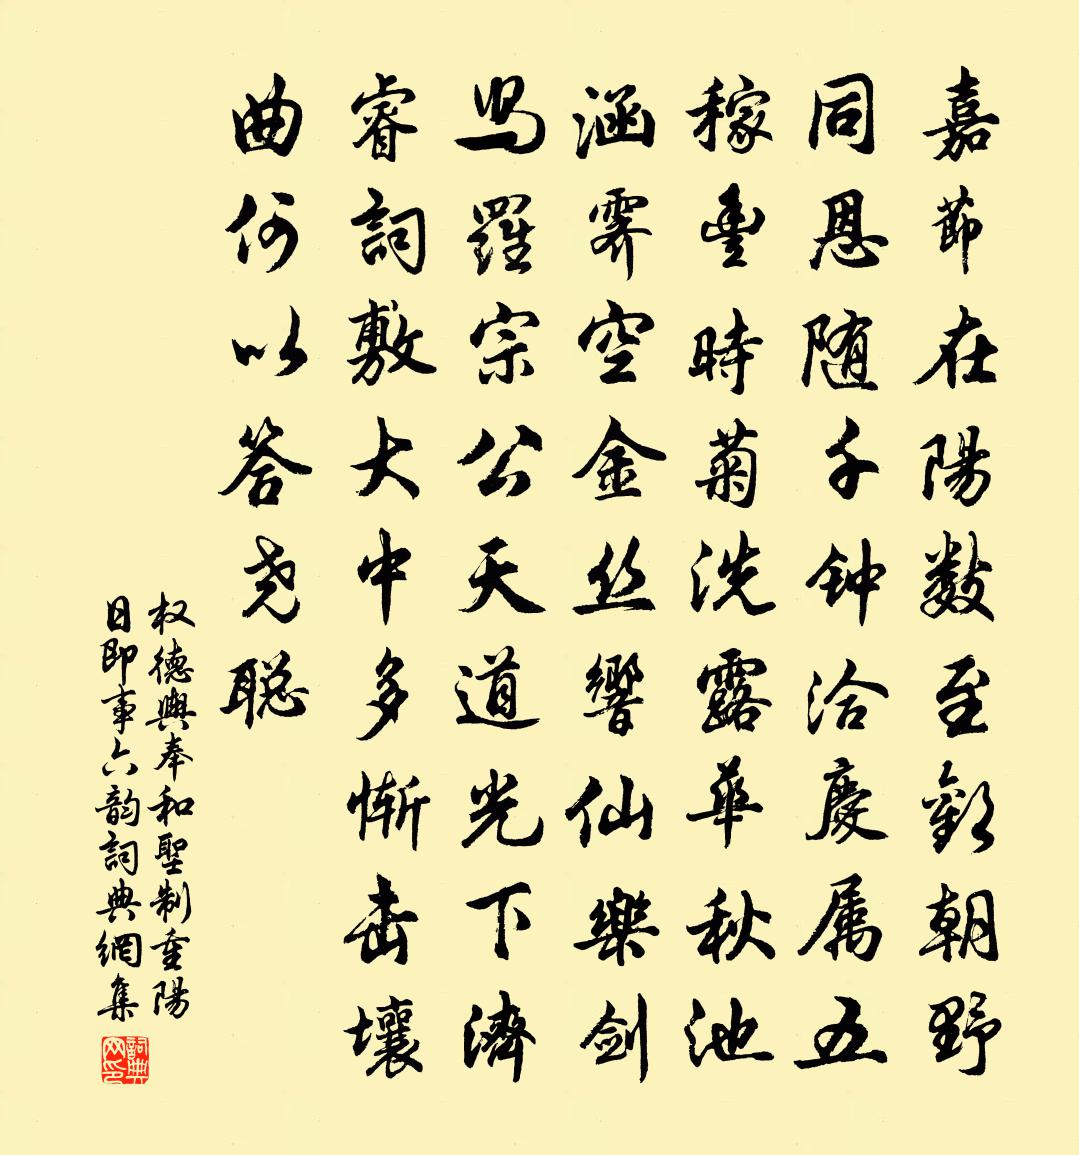 嘉節在陽數至歡朝野
同恩随千钟洽慶属五
稼豐時菊洗露華秋池
涵霽空金丝響仙樂剑
舄羅宗公天道光下濟
睿詞敷大中多慚击壤
曲何以答尧聪
权德輿奉和聖制重陽
日即事六韵詞典網集
詞典
网印